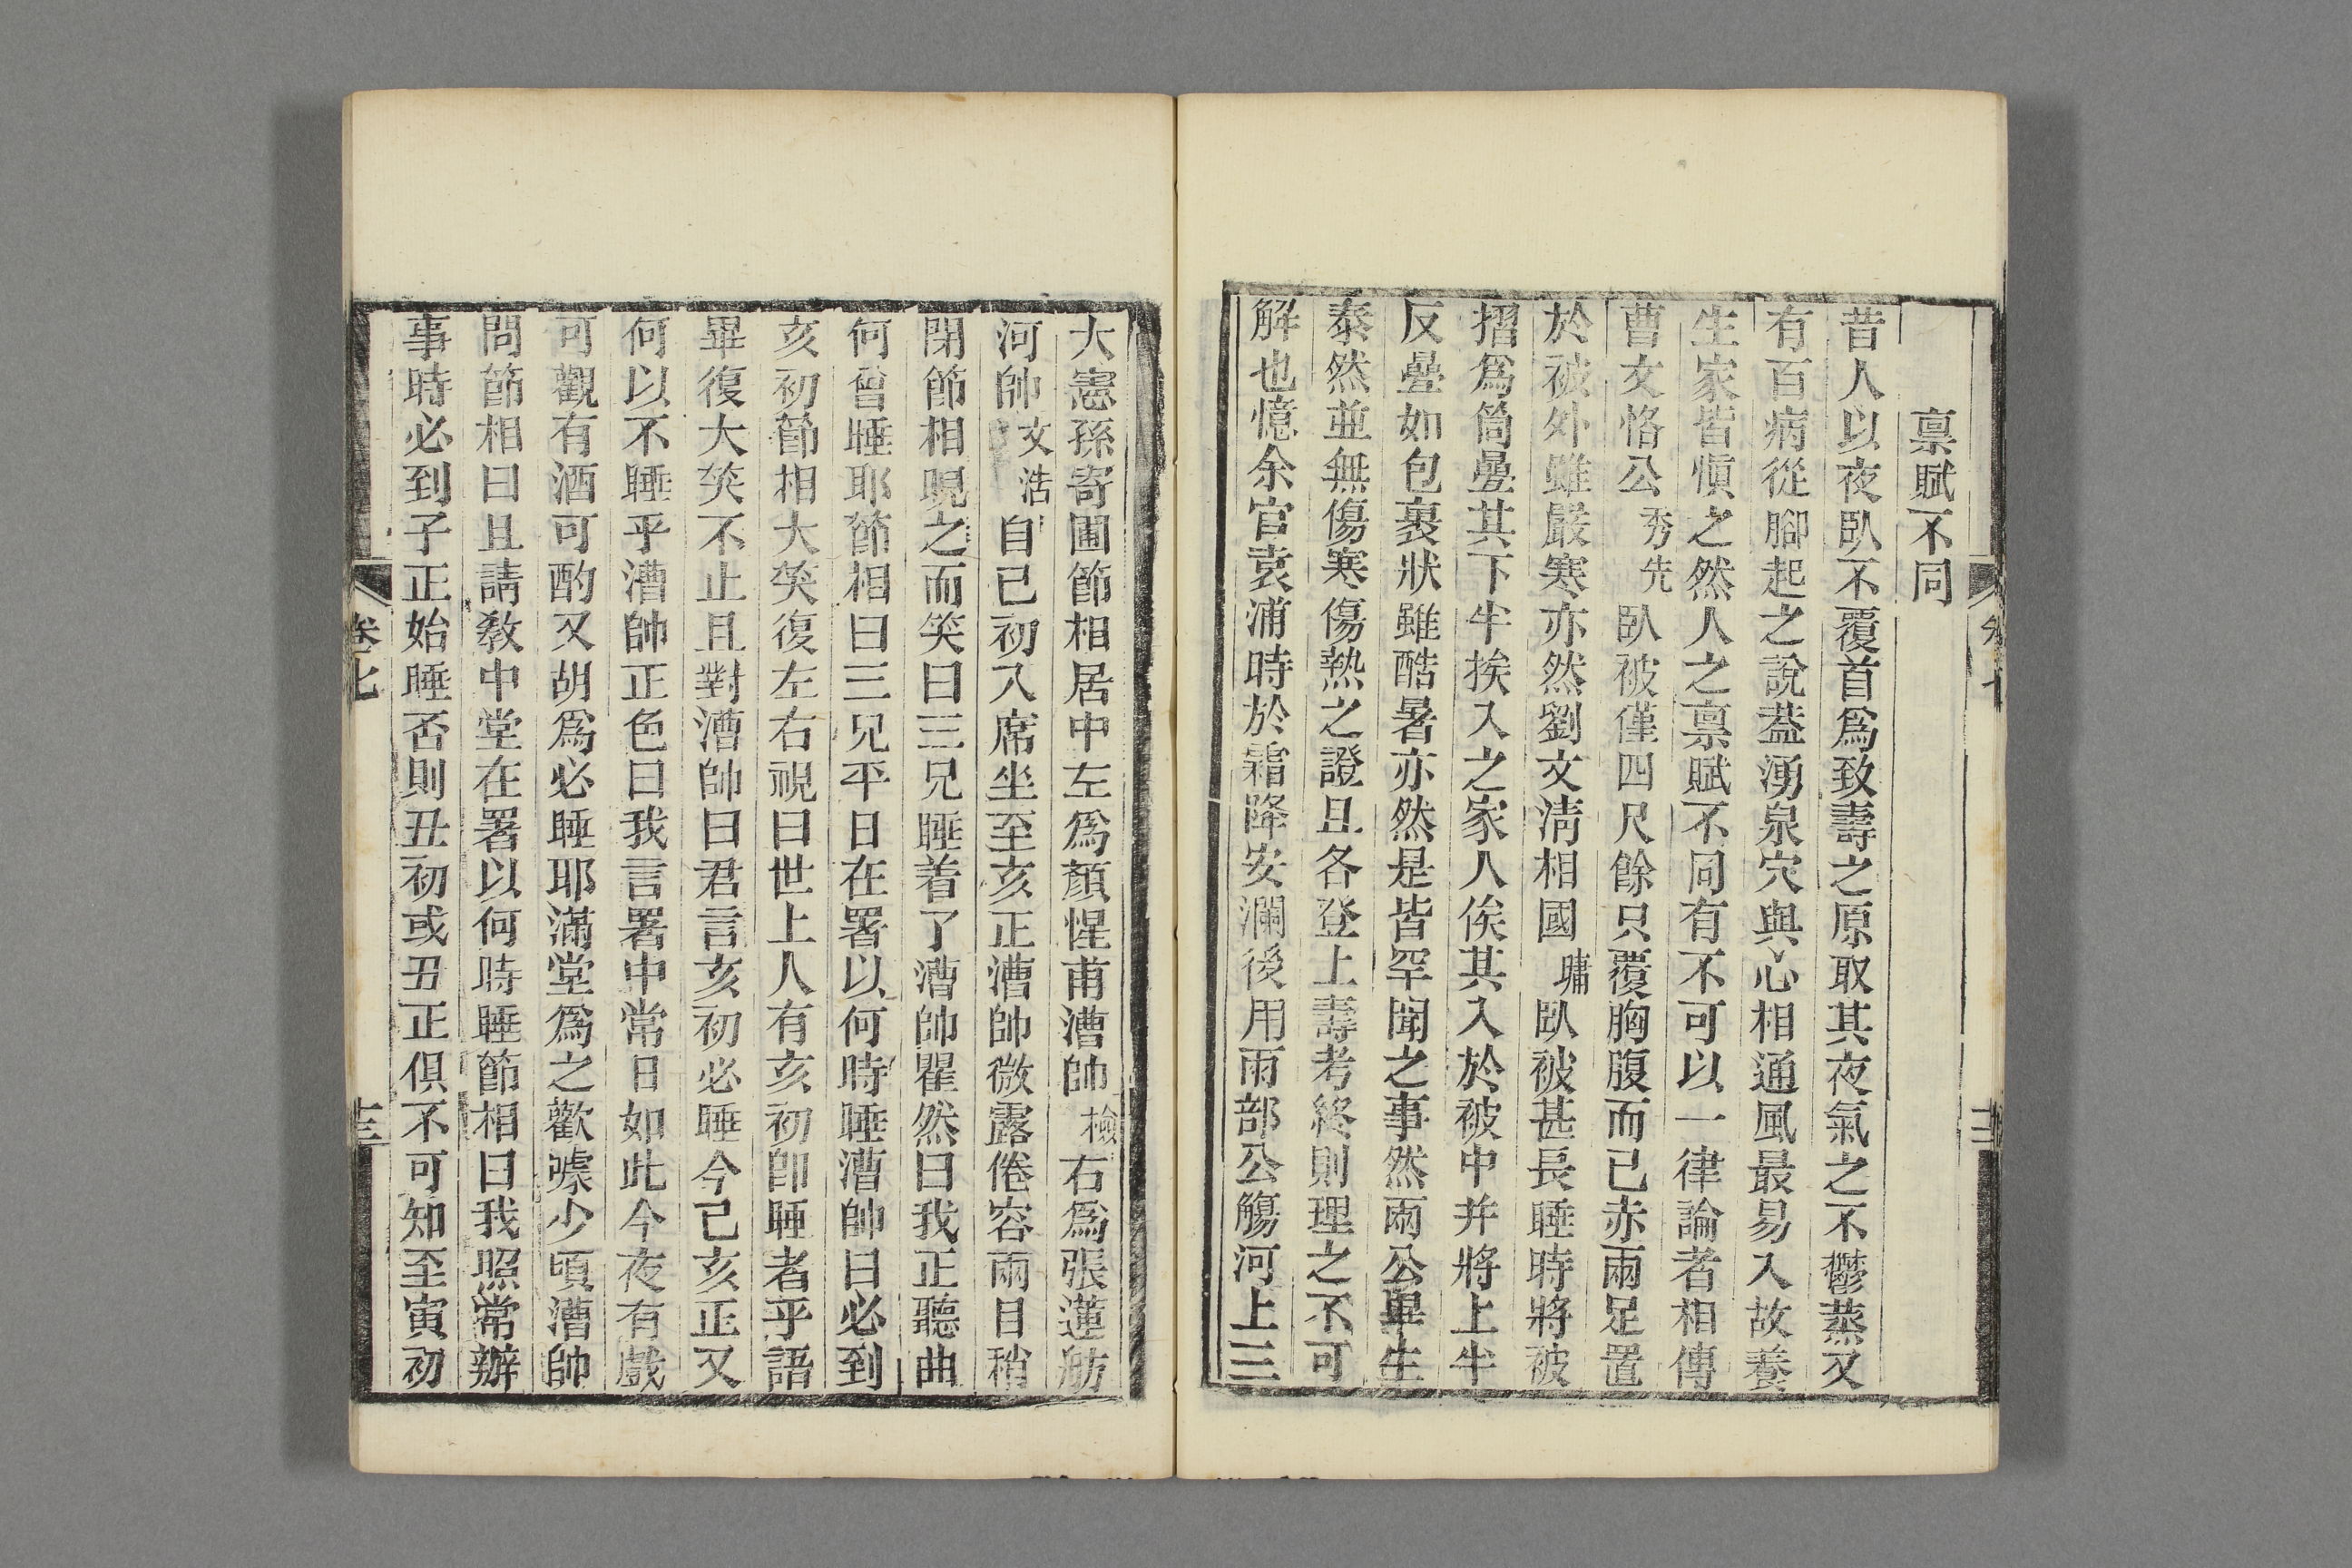 稟賦不同
昔人以夜臥不覆首爲致壽之原取其夜氣之不鬱蒸又
有百病從腳起之說葢湧泉穴與心相通風最易入故養
生家皆愼之然人之稟賦不同有不可以一律論者相傳
曹文恪公秀先臥被僅四尺餘只覆胸腹而已赤兩足置
於被外雖嚴寒亦然劉文淸相國墉臥被甚長睡時將被
摺爲筒疊其下半挨入之家人俟其入於被中并將上半
反疊如包裹狀雖酷暑亦然是皆罕聞之事然兩公畢生
泰然並無傷寒傷熱之證且各登上壽考終則理之不可
解也憶余官袁浦時於霜降安瀾後用雨部公觴河上三
大憲孫寄圃節相居中左爲顏惺甫漕帥檢右爲張蓮舫
河帥文浩自已初入席坐至亥正漕帥微露倦容兩目稍
閉節相覘之而笑曰三兄睡着了漕帥瞿然曰我正聽曲
何曾睡耶節相曰三兄平日在署以何時睡漕帥曰必到
亥初節相大笑復左右視曰世上人有亥初卽睡者乎語
畢復大笑不止且對漕帥曰君言亥初必睡今已亥正又
何以不睡乎漕帥正色曰我言署中常日如此今夜有戲
可觀有酒可酌又胡爲必睡耶滿堂爲之歡噱少頃漕帥
問節相曰且請敎中堂在署以何時睡節相曰我照常辦
事時必到子正始睡否則丑初或丑正俱不可知至寅初
卷七
十三